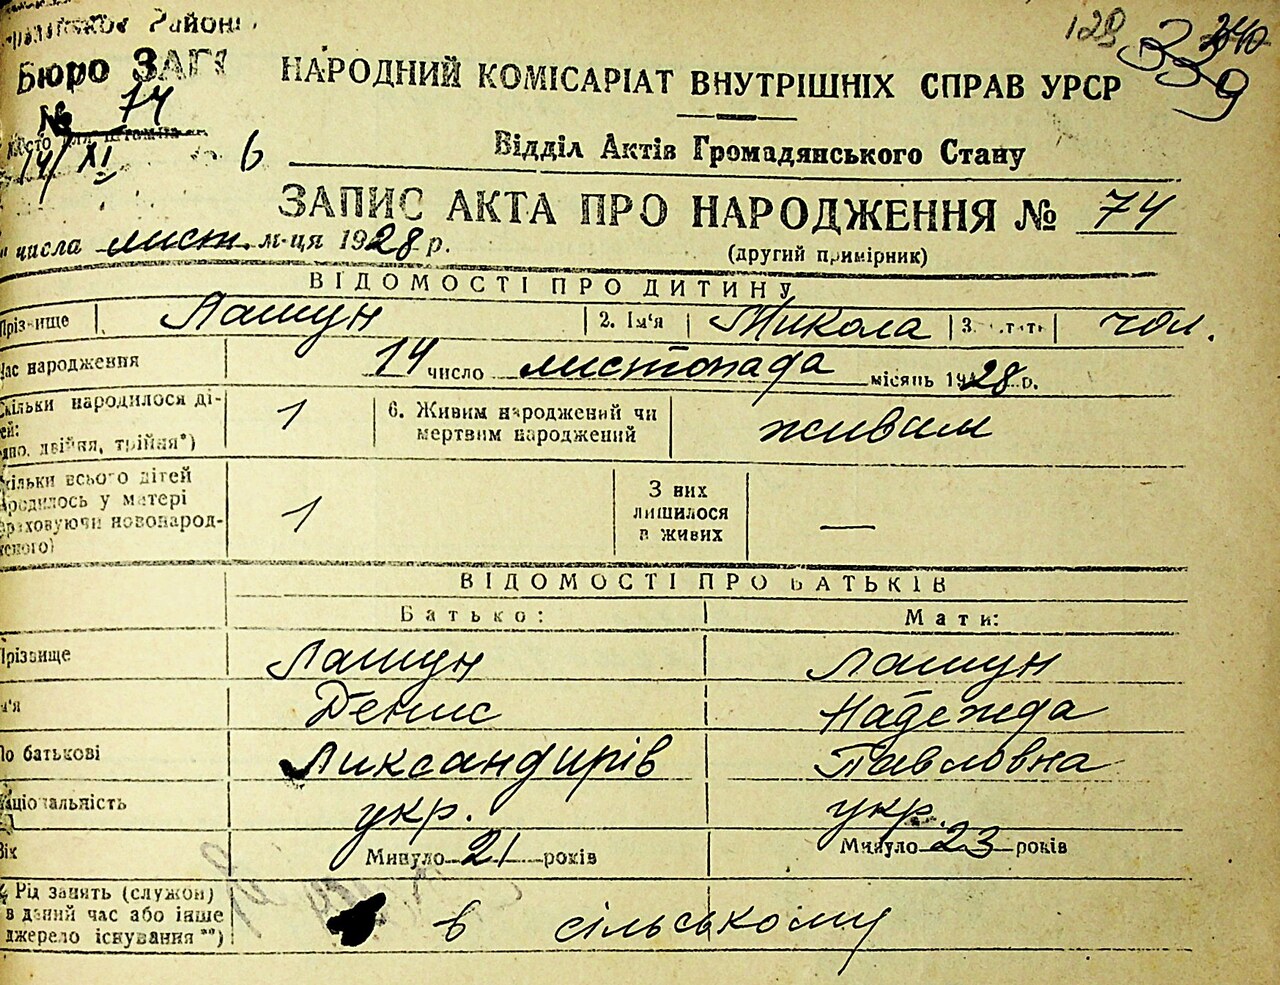 Район
Бюро ЗАГС
№ 74
14/XI
129 340
339
НАРОДНИЙ КОМІСАРІАТ ВНУТРІШНІХ СПРАВ УРСР
6 Відділ Актів Громадянського Стану
ЗАПИС АКТА ПРО НАРОДЖЕННЯ № 74
числа лист. м-ця 1928 р. (другий примірник)
ВІДОМОСТІ ПРО ДИТИНУ
Прізвище Лашун 2. Ім'я Микола 3. чол.
Час народження 14 число листопада місяць 1928 р.
Скільки народилося ді-
тей:
двійня, трійня*) 1 6. Живим народжений чи
мертвим народжений живим
Скільки всього дітей
народилось у матері
враховуючи новонарод-
женого) 1 З них
лишилося
в живих —
ВІДОМОСТІ ПРО БАТЬКІВ
Батько: Мати:
Прізвище Лашун Лашун
Ім'я Денис Надежда
По батькові Ликсандирів Павловна
Національність укр. укр.
Вік Минуло 21 років Минуло 23 років
Рід занять (служби)
в даний час або інше
джерело існування **) в сільському